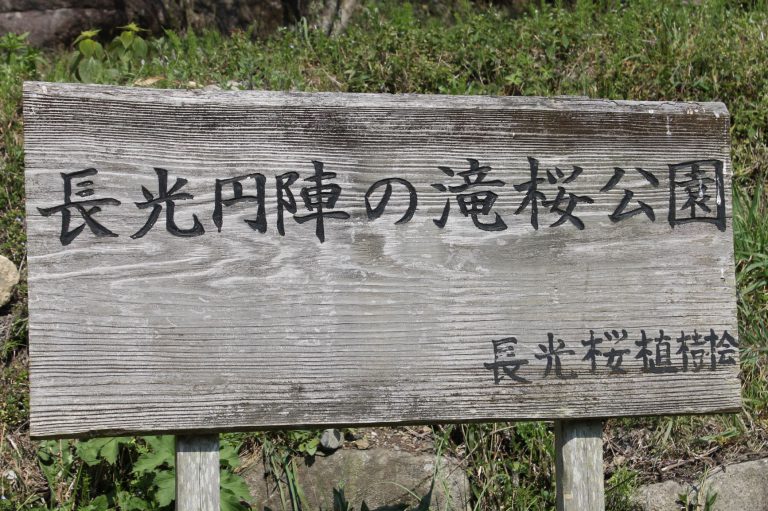 長光円陣の滝桜公園
長光桜植樹桧